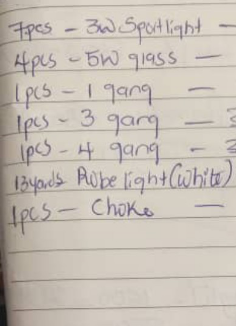 7pcs - 3W Spotlight -
4pcs - 5W glass -
1pcs - 1 gang -
1pcs - 3 gang -
1pcs - 4 gang -
13yards Robe light (White)
1pcs - Choke -